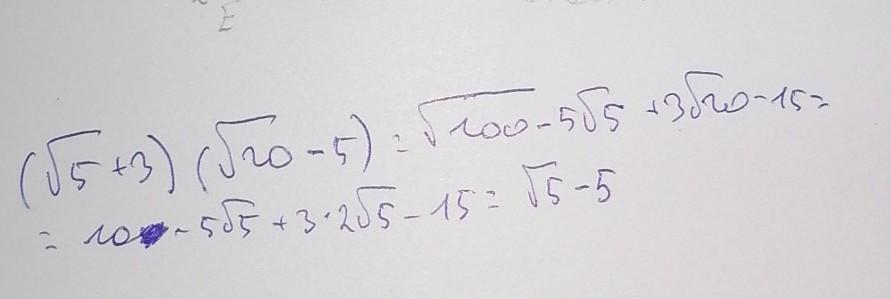 E
(√5+3)(√20-5)=√100-5√5+3√20-15=
=10-5√5+3·2√5-15=√5-5